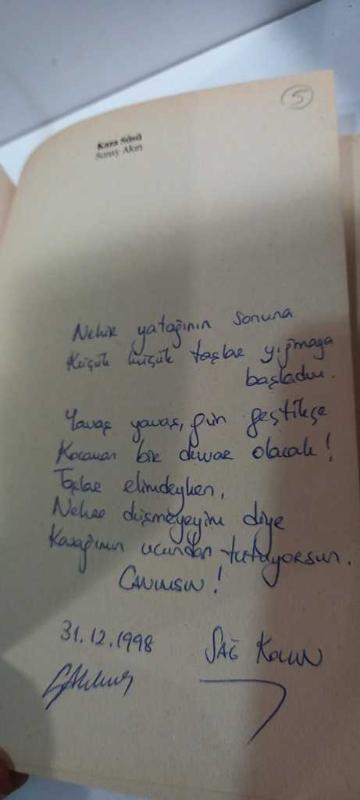 5
Kaza Süsü
Sunay Akın
Nehir yatağının sonuna
Küçük küçük taşlar yığmaya
başladım.
Yavaş yavaş, gün geçtikçe
Kocaman bir duvar olacak!
Taşlar elimdeyken,
Nehre düşmeyeyim diye
Kazağımın ucundan tutuyorsun.
CANIMSIN!
31.12.1998
SAĞ KOLUN